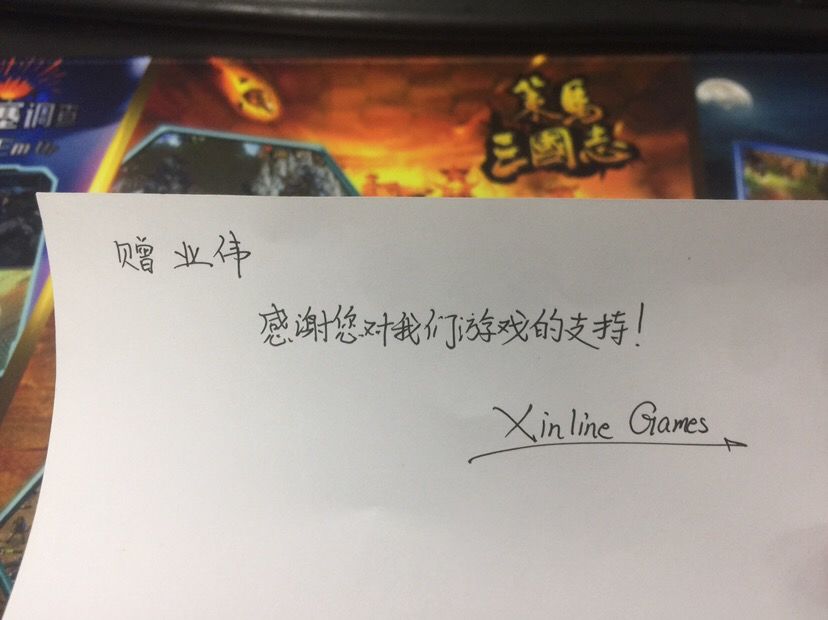 策馬
三國志
调查
赠 业伟
感谢您对我们游戏的支持!
Xinline Games